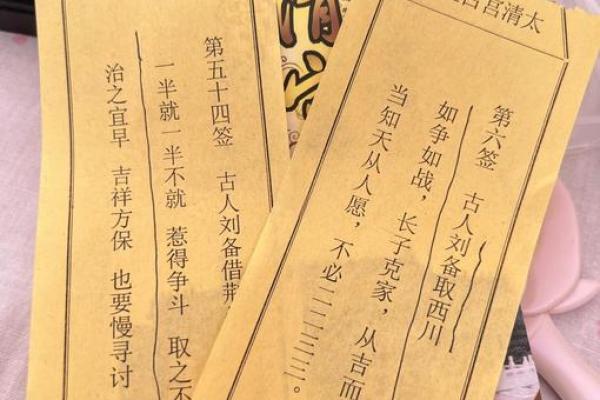 太清宫
第六签 古人刘备取西川
如争如战，长子克家，从吉而
当知天从人愿，不必二二三三。
第五十四签 古人刘备借荆
一半就一半不就 惹得争斗 取之不
治之宜早 吉祥方保 也要慢寻讨